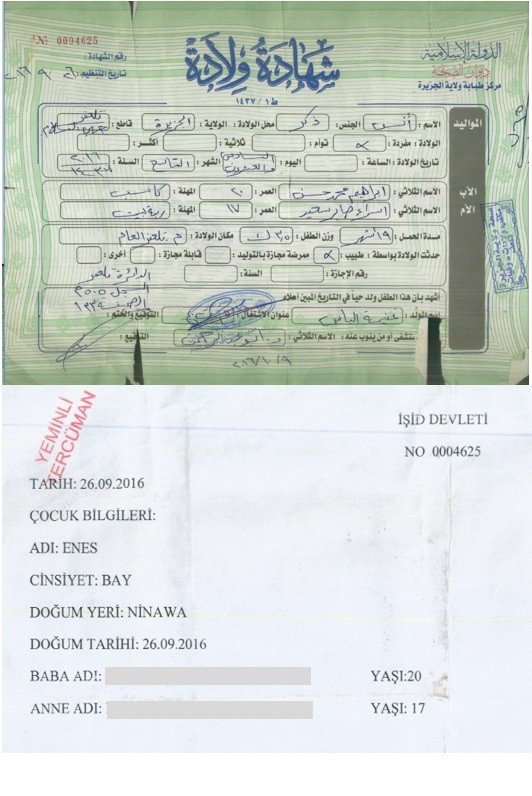 № 0004625
الدولة الإسلامية
ديوان الصحة
مركز طبابة ولاية الجزيرة
شهادة ولادة
ط١ / ١٤٣٧
رقم الشهادة:
تاريخ التنظيم: ٢٠١٦/٩/٢٦
المواليد
الاسم: أنس الجنس: ذكر محل الولادة: الولاية: الجزيرة قاطع: تلعفر
الولادة: مفردة توأم: ثلاثية: أكثر:
تاريخ الولادة: الساعة: اليوم: السادس والعشرون الشهر: التاسع السنة: ٢٠١٦
الأب
الاسم الثلاثي: ابراهيم محمد حسن العمر: ٢٠ المهنة: كاسب
الأم
الاسم الثلاثي: اسراء صابر سعيد العمر: ١٧ المهنة: ربة بيت
مدة الحمل: ٩ اشهر وزن الطفل: ٣,٥ ك مكان الولادة: م. تلعفر العام
حدثت الولادة بواسطة: طبيب: ممرضة مجازة بالتوليد: قابلة مجازة: أخرى:
رقم الإجازة: السنة:
أشهد بأن هذا الطفل ولد حيا في التاريخ المبين أعلاه
عنوان الاشتغال: التوقيع والختم:
مستشفى أو من ينوب عنه: الاسم الثلاثي: التوقيع:
٢٠١٦/١٠/٩
YEMİNLİ
TERCÜMAN
IŞİD DEVLETİ
NO 0004625
TARİH: 26.09.2016
ÇOCUK BİLGİLERİ:
ADI: ENES
CİNSİYET: BAY
DOĞUM YERİ: NINAWA
DOĞUM TARİHİ: 26.09.2016
BABA ADI: YAŞI:20
ANNE ADI: YAŞI: 17